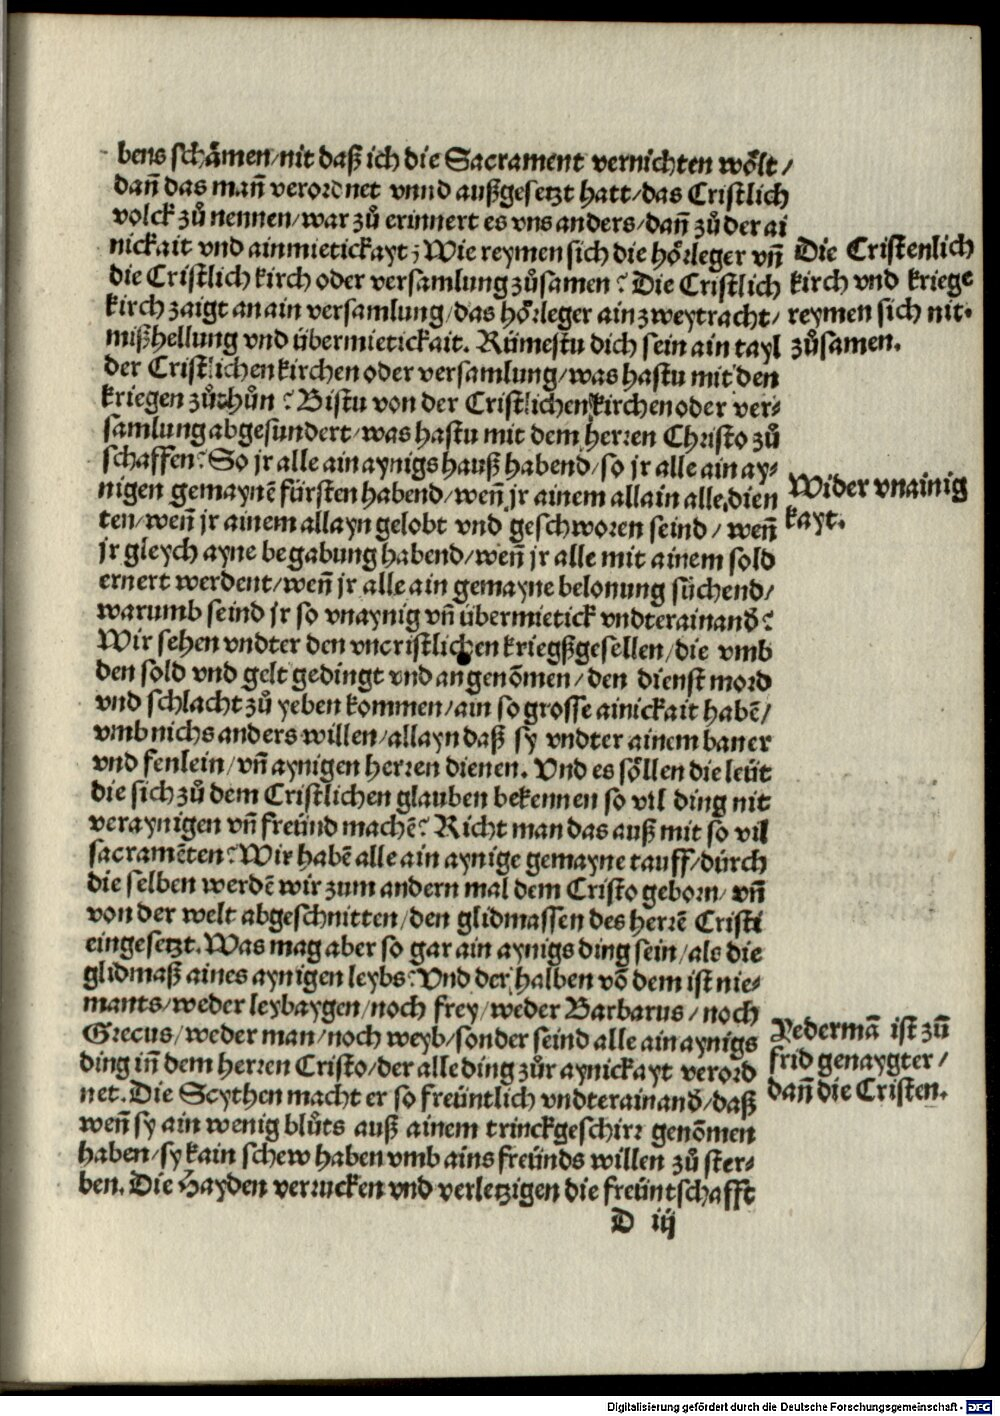 bens schämen/nit daß ich die Sacrament vernichten wölt/
dañ das mañ verordnet vnnd außgesetzt hatt/das Cristlich
volck zů nennen/war zů erinnert es vns anders/dañ zů der ai
nickait vnd ainmietickayt; Wie reymen sich die hörleger vñ
die Cristlich kirch oder versamlung zůsamen? Die Cristlich
kirch zaigt an ain versamlung/das hörleger ain zweytracht/
mißhellung vnd übermietickait. Rümestu dich sein ain tayl
der Cristlichen kirchen oder versamlung/was hastu mit den
kriegen zůthůn? Bistu von der Cristlichen kirchen oder ver-
samlung abgesundert/was hastu mit dem herren Christo zů
schaffen? So jr alle ain aynigs hauß habend/so jr alle ain ay-
nigen gemaynē fürsten habend/weñ jr ainem allain alle dien
ten/weñ jr ainem allayn gelobt vnd geschworen seind/weñ
jr gleych ayne begabung habend/weñ jr alle mit ainem sold
ernert werdent/weñ jr alle ain gemayne belonung süchend/
warumb seind jr so vnaynig vñ übermietick vndterainand?
Wir sehen vndter den vncristlichen kriegßgesellen/die vmb
den sold vnd gelt gedingt vnd angenōmen/den dienst mord
vnd schlacht zů yeben kommen/ain so grosse ainickait habē/
vmb nichs anders willen/allayn daß sy vndter ainem baner
vnd fenlein/vñ aynigen herren dienen. Vnd es söllen die leüt
die sich zů dem Cristlichen glauben bekennen so vil ding nit
veraynigen vñ freünd machē? Richt man das auß mit so vil
sacramēten? Wir habē alle ain aynige gemayne tauff/dürch
die selben werdē wir zum andern mal dem Cristo geborn/vñ
von der welt abgeschnitten/den glidmassen des herrē Cristi
eingesetzt. Was mag aber so gar ain aynigs ding sein/als die
glidmaß aines aynigen leybs? Vnd der halben vō dem ist nie-
mants/weder leybaygen/noch frey/weder Barbarus/noch
Grecus/weder man/noch weyb/sonder seind alle ain aynigs
ding iñ dem herren Cristo/der alle ding zůr aynickayt verord
net. Die Scythen macht er so freüntlich vndterainand/daß
weñ sy ain wenig blůts auß ainem trinckgeschirr genōmen
haben/sy kain schew haben vmb ains freünds willen zů ster-
ben. Die Hayden verrucken vnd verletzigen die freüntschafft
D iij
Die Cristenlich
kirch vnd kriege
reymen sich nit
zůsamen.
Wider vnainig
kayt.
Yedermā ist zů
frid genaygter/
dañ die Cristen.
Digitalisierung gefördert durch die Deutsche Forschungsgemeinschaft - DFG